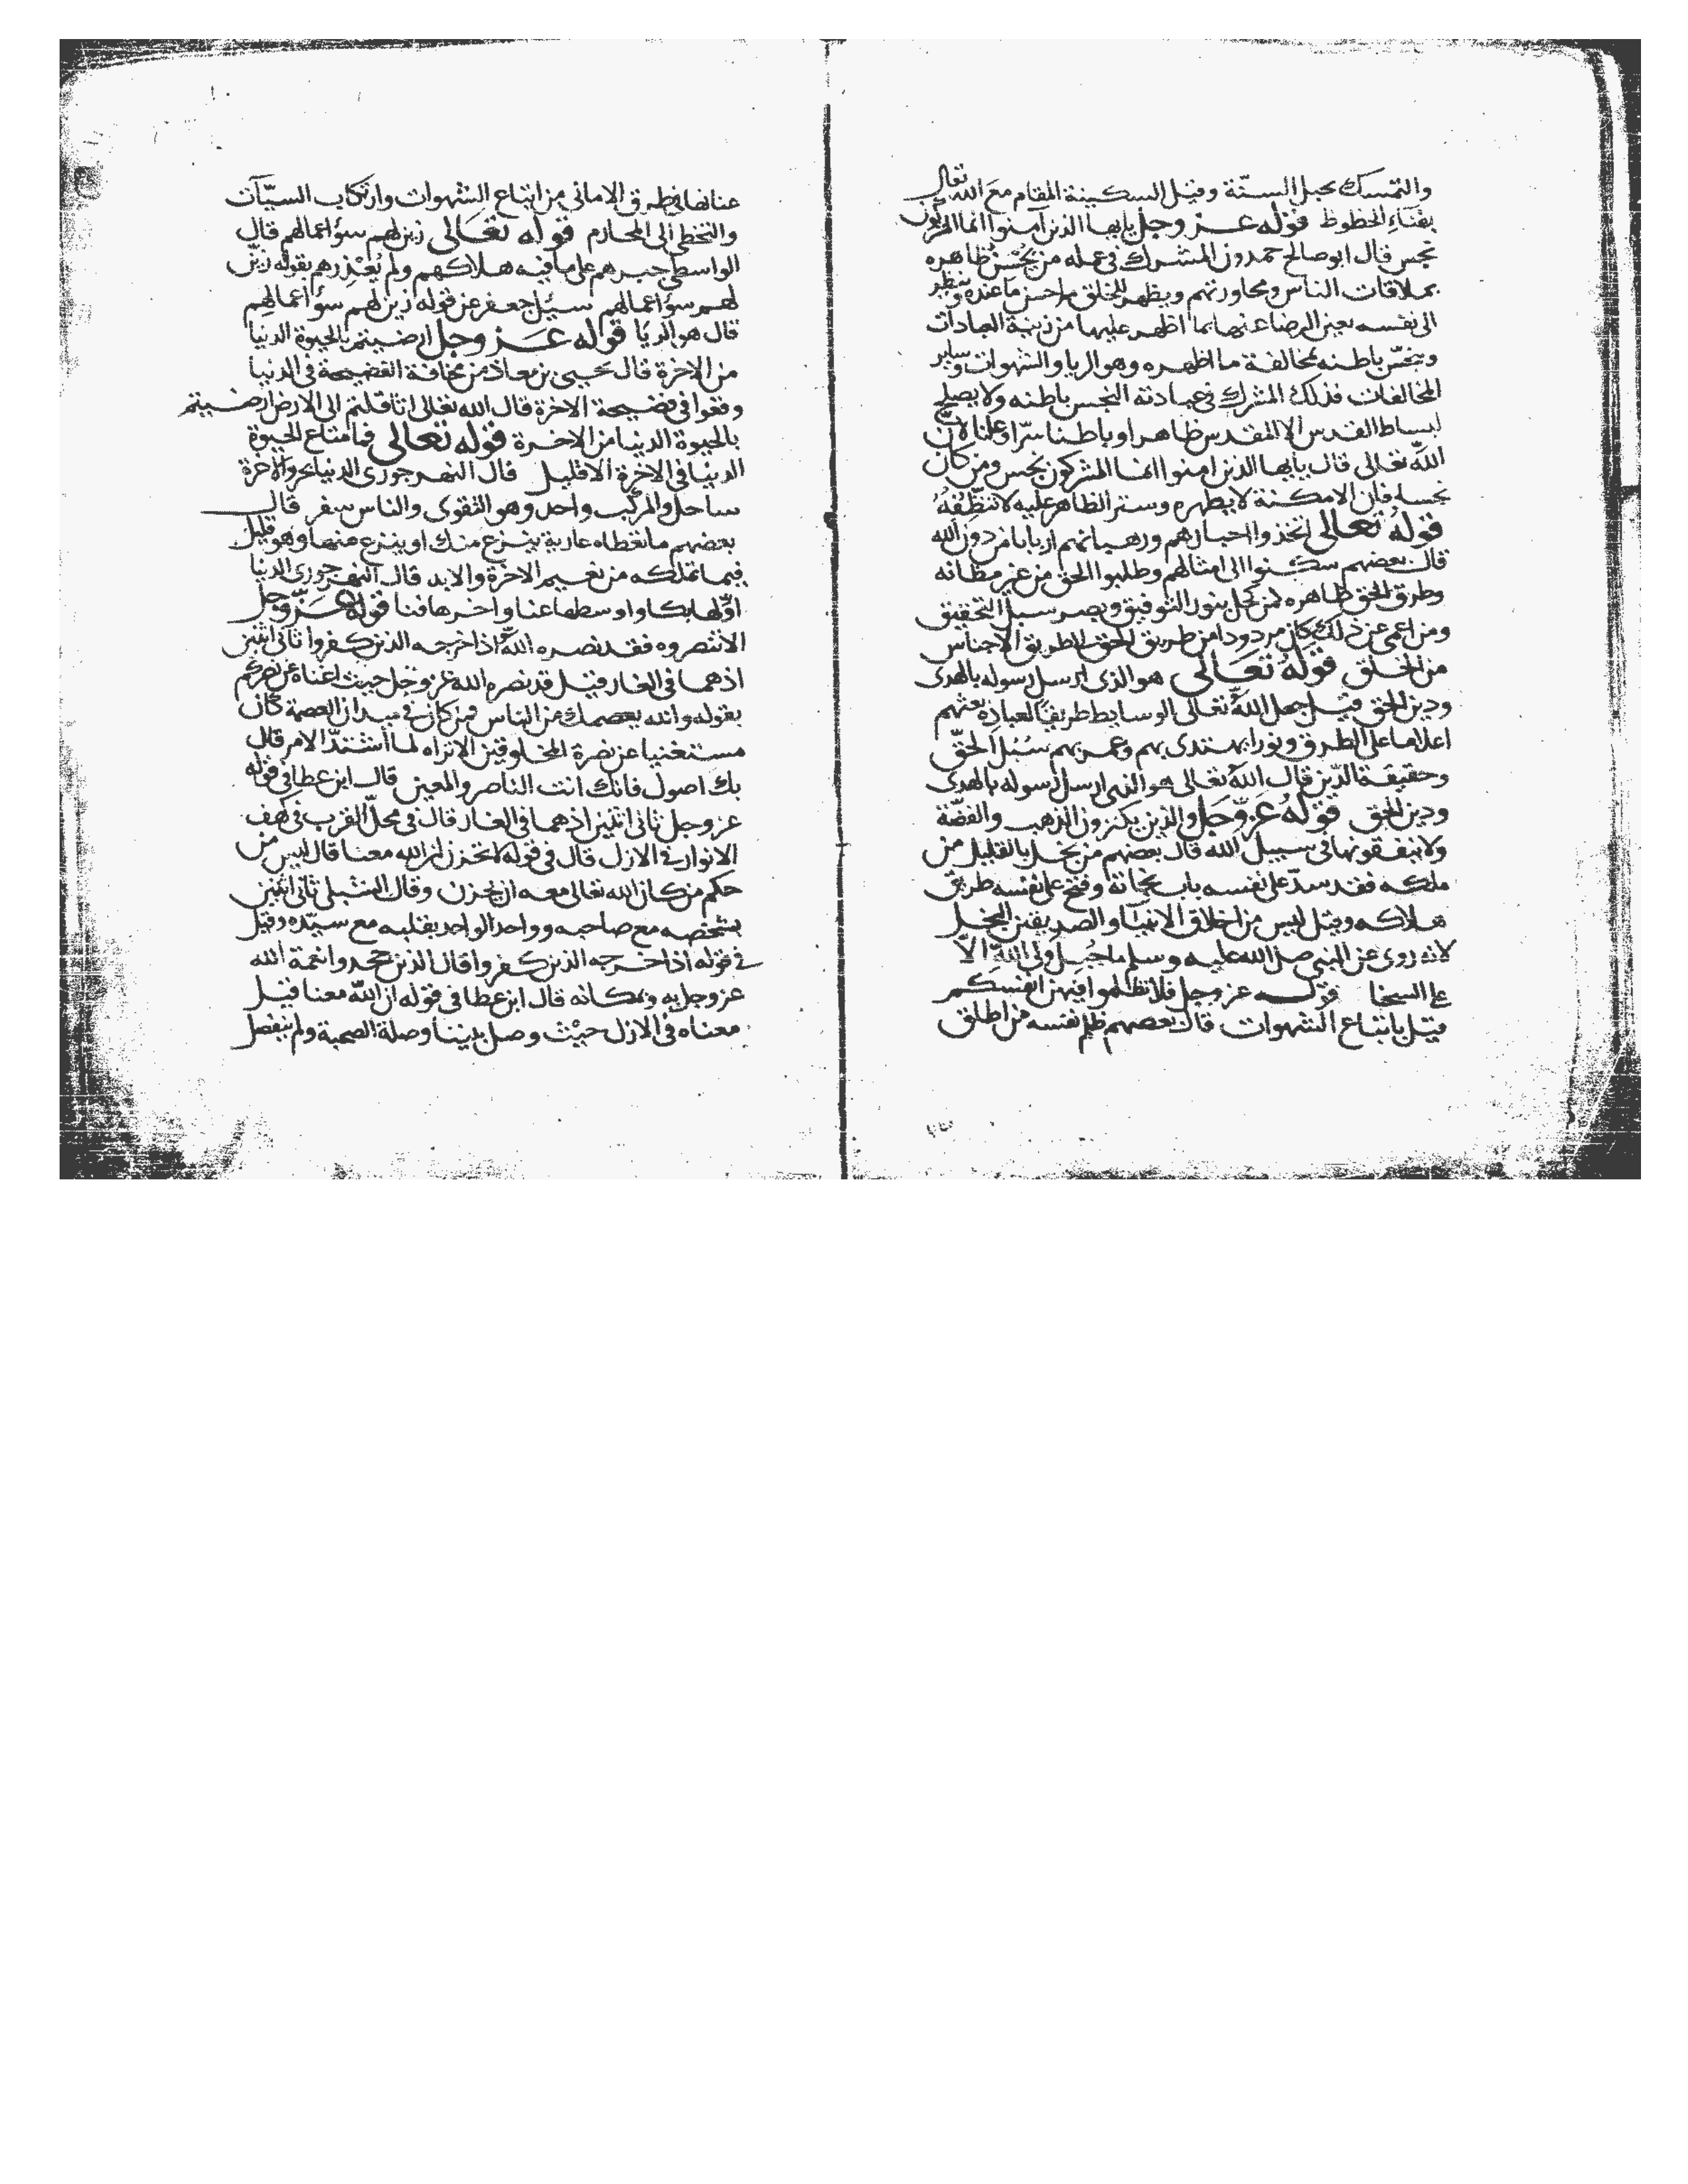 والتمسك بحبل السنّة وقيل السكينة المقام مع الله تعالى
بفناء الحظوظ قوله عز وجل يايها الذين آمنوا انما المشركون
نجس قال ابو صالح حمدون المشرك في عمله من يحسن ظاهره
بملاقات الناس ومحاورتهم ويظهر للخلق احسن ما عنده وينظر
الى نفسه بعين الرضا عنها بما اظهر عليها من زينة العبادات
وينجّس باطنه بمخالفة ما اظهره وهو الريا والشهوات وساير
المخالفات فذلك المشرك في عبادته النجس باطنه ولا يصلح
لبساط القدس الا المقدس ظاهرا وباطنا سرّا وعلنا لان
الله تعالى قال يايها الذين امنوا انما المشركون نجس ومن كان
نجسا فان الامكنة لا يطهره وستر الظاهر عليه لا تنظّفه
قوله تعالى اتخذوا احبارهم ورهبانهم اربابا من دون الله
قال بعضهم سكنوا الى امثالهم وطلبوا الحق من غير مظانه
وطرق الحق ظاهره لمن كحل بنور التوفيق وبصر سبل التحقيق
ومن اعمى عن ذلك كان مردودا من طريق الحق الى طريق الاجناس
من الخلق قوله تعالى هو الذى ارسل رسوله بالهدى
ودين الحق قيل جعل الله تعالى الوسايط طريقا لعباده بعثهم
اعلاما على الطرق ونورا يهتدى بهم وعمر بهم سبل الحقّ
وحقيقة الدّين قال الله تعالى هو الذى ارسل رسوله بالهدى
ودين الحق قوله عزّ وجل والذين يكنزون الذهب والفضّة
ولا ينفقونها في سبيل الله قال بعضهم من بخل بالقليل من
ملكه فقد سدّ على نفسه باب نجاته وفتح على نفسه طريق
هلاكه وقيل ليس من اخلاق الانبيا والصديقين البخل
لانه روى عن النبي صلى الله عليه وسلم ما جبل ولى الله الاّ
على السخا قوله عز وجل فلا تظلموا فيهن انفسكم
قيل باتباع الشهوات قال بعضهم ظلم نفسه من اطلق
عنانها في طرق الاماني من اتباع الشهوات وارتكاب السيّآت
والتخطى الى المحارم قوله تعالى زين لهم سؤ اعمالهم قال
الواسطى جبرهم على ما فيه هلاكهم ولم يعذرهم بقوله زين
لهم سؤ اعمالهم سئل جعفر عن قوله زين لهم سؤ اعمالهم
قال هو الريا قوله عز وجل ارضيتم بالحيوة الدنيا
من الاخرة قال يحيى بن معاذ من مخافة الفضيحة في الدنيا
وقعوا في فضيحة الاخرة قال الله تعالى اثاقلتم الى الارض ارضيتم
بالحيوة الدنيا من الاخرة قوله تعالى فما متاع الحيوة
الدنيا في الاخرة الا قليل قال النهرجورى الدنيا بحر والاخرة
ساحل والمركب واحد وهو التقوى والناس سفر قال
بعضهم ما تعطاه عارية ينزع منك او ينزع عنها وهو قليل
فيما تملكه من نعيم الاخرة والابد قال النهرجورى الدنيا
اوّلها بكا واوسطها عنا واخرها فنا قوله عزّ وجل
الا تنصروه فقد نصره الله اذ اخرجه الذين كفروا ثانى اثنين
اذ هما في الغار قيل قد نصره الله عز وجل حيث اغناه عن نصرتكم
بقوله والله يعصمك من الناس فمن كان في ميدان العصمة كان
مستغنيا عن نصرة المخلوقين الا تراه لما اشتدّ الامر قال
بك اصول فانك انت الناصر والمعين قال ابن عطا في قوله
عز وجل ثانى اثنين اذ هما في الغار قال في محلّ القرب في كهف
الانوار في الازل قال في قوله لا تحزن ان الله معنا قال ليس من
حكم من كان الله تعالى معه ان يحزن وقال الشبلى ثانى اثنين
بشخصه مع صاحبه وواحد الواحد بقلبه مع سيّده وقيل
في قوله اذ اخرجه الذين كفروا قال الذين جحدوا نعمة الله
عز وجل به وبمكانه قال ابن عطا في قوله ان الله معنا قيل
معناه في الازل حيث وصل بيننا وصلة الصحبة ولم ينفصل